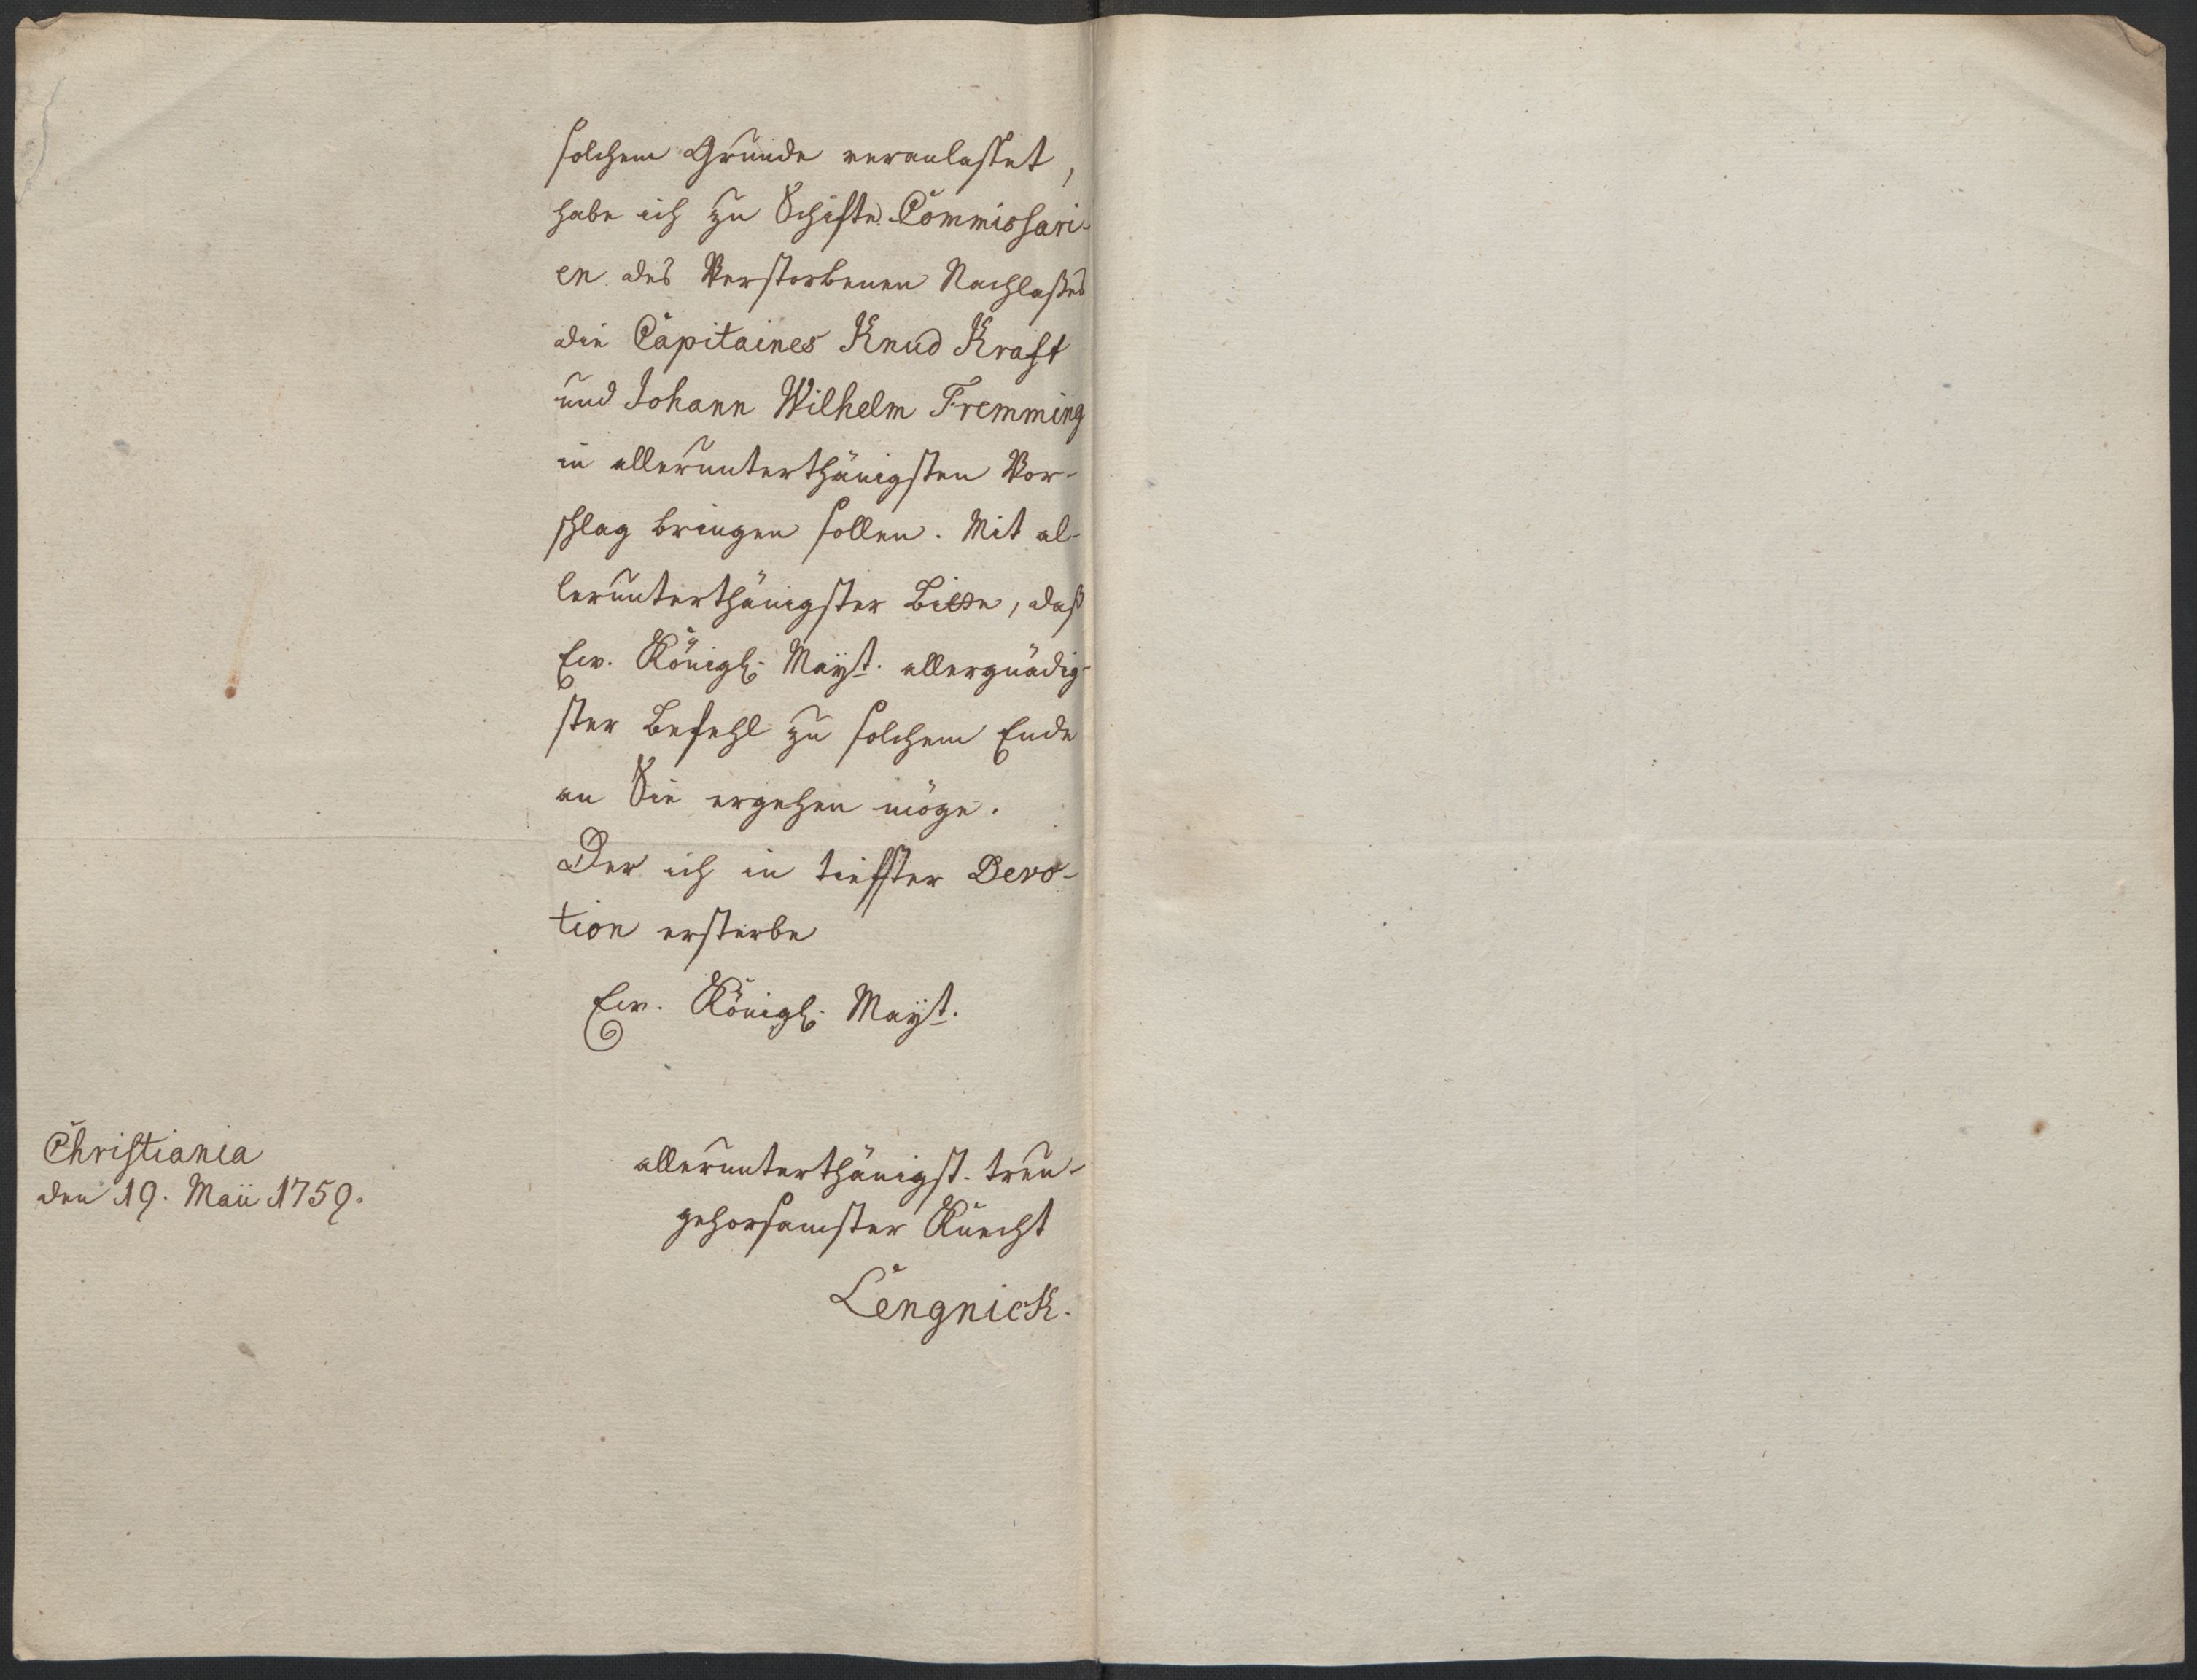 solchem Grunde veranlaßet,
habe ich zu Schifts Commissari-
en des Verstorbenen Nachlaßes
die Capitaines Knud Kraft
und Johann Wilhelm Fremming
in allerunterthänigsten Vor-
schlag bringen sollen. Mit al-
lerunterthänigster Bitte, daß
Ew. Königl. Mayst. allergnädig-
ster Befehl zu solchem Ende
an Sie ergehen möge.
Der ich in tiefster Devo-
tion ersterbe
Ew. Königl. Mayst.
allerunterthänigst. treu-
gehorsamster Knecht
Lengnick.
Christiania
den 19. Maii 1759.